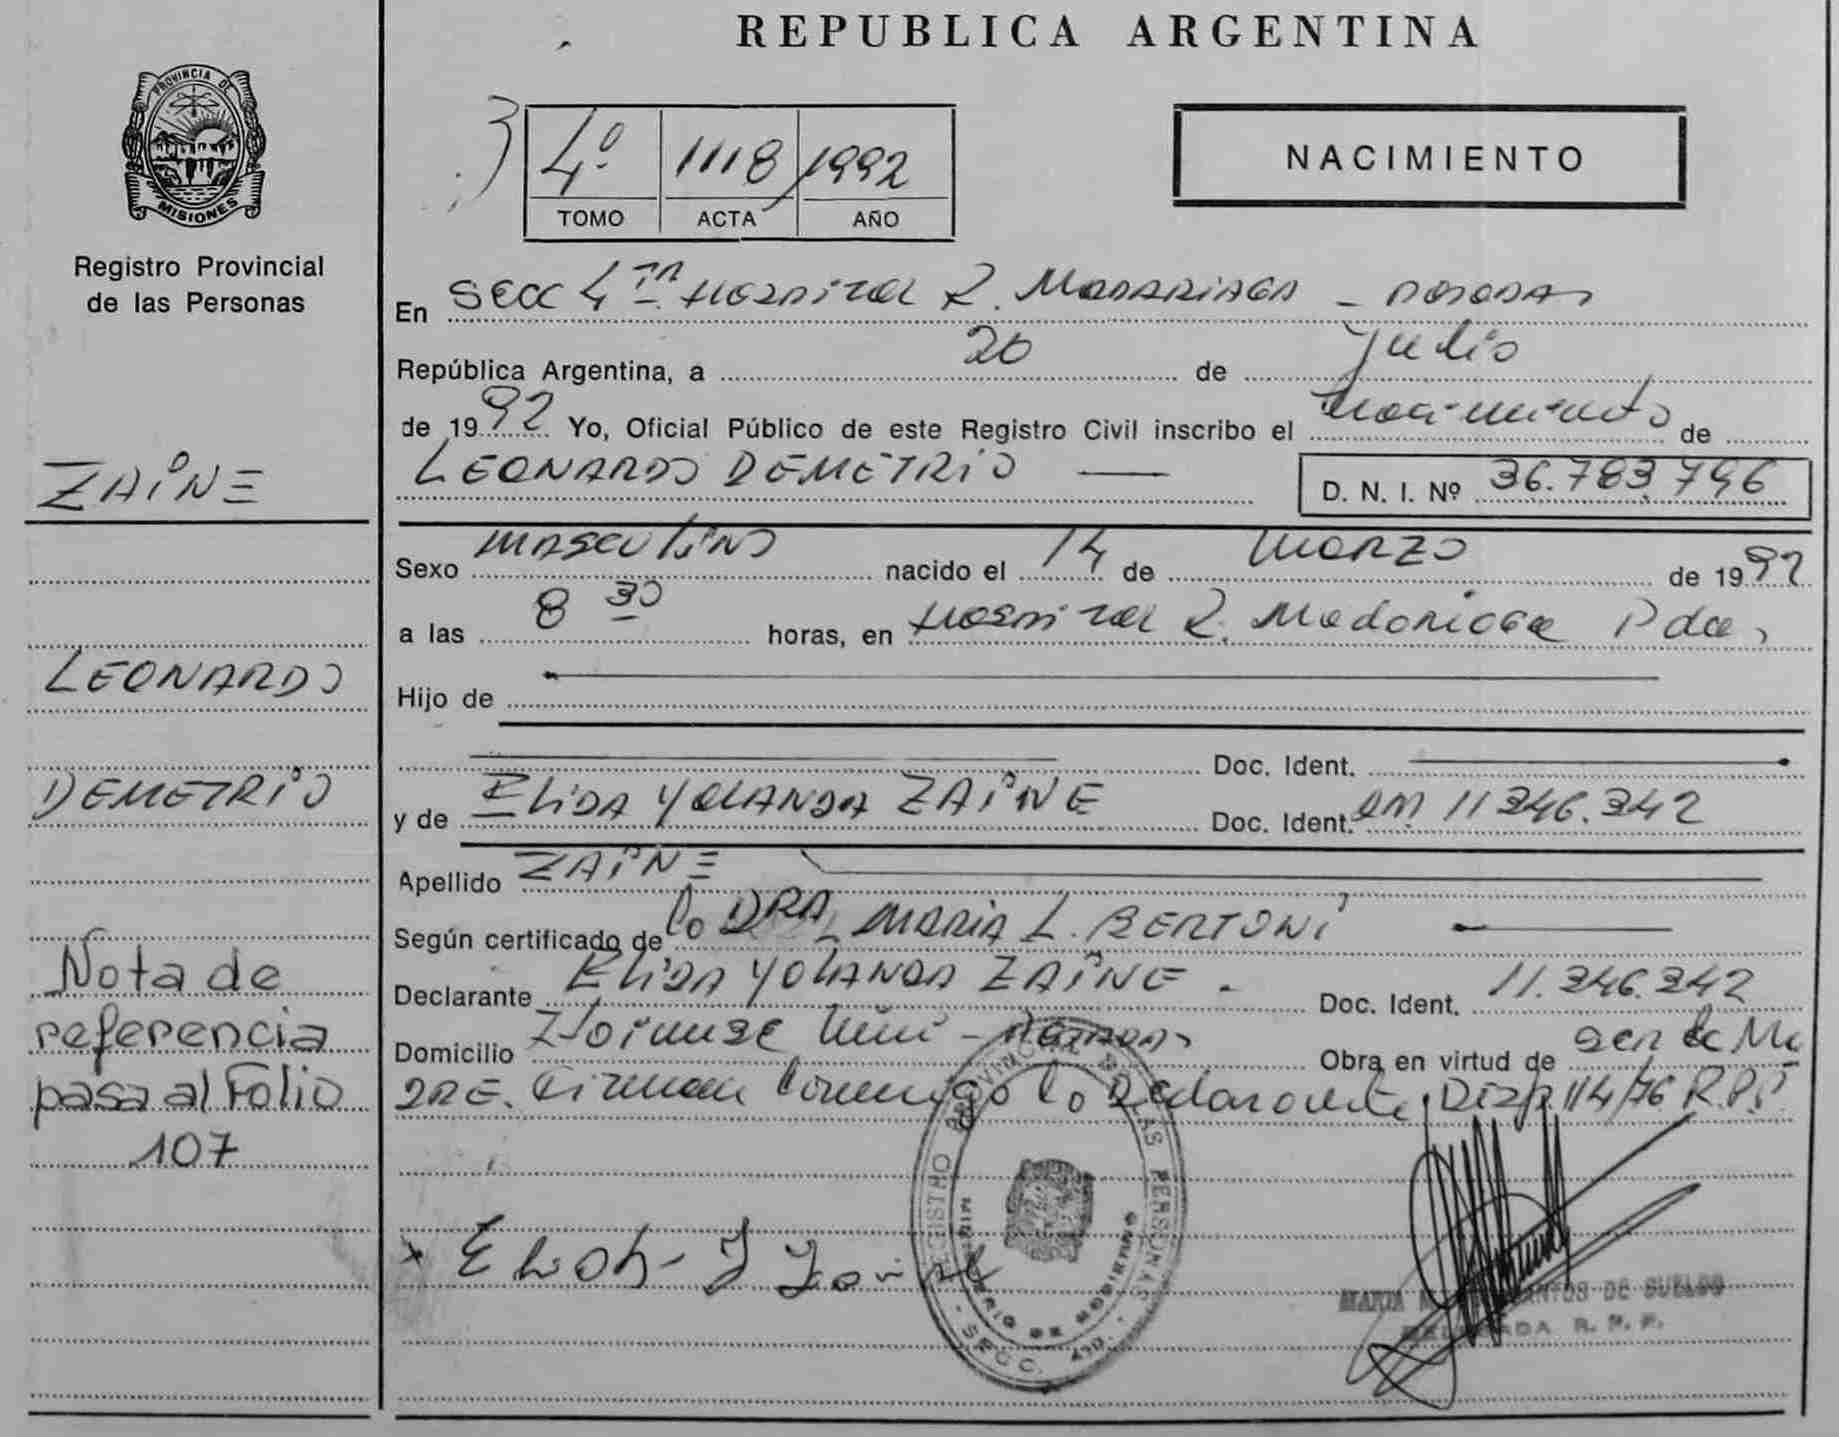 REPUBLICA ARGENTINA
PROVINCIA DE
MISIONES
Registro Provincial
de las Personas
4º 1118 1992
TOMO ACTA AÑO
NACIMIENTO
En Secc 4ta Hospital R. Madariaga - Posadas
República Argentina, a 20 de Julio
de 1992 Yo, Oficial Público de este Registro Civil inscribo el nacimiento de
LEONARDO DEMETRIO
D. N. I. Nº 36.783.796
Sexo masculino nacido el 14 de marzo de 1992
a las 8 30 horas, en Hospital R. Madariaga Pdas
Hijo de
Doc. Ident.
y de ELIDA YOLANDA ZAINE Doc. Ident. 11 346.342
Apellido ZAINE
Según certificado de la DRA MARIA L. BERTONI
Declarante ELIDA YOLANDA ZAINE. Doc. Ident. 11.346.342
Domicilio Obra en virtud de ser la Ma
DRE. Firman conmigo la Declarante Disp. 114/76 R.P.P.
ZAINE
LEONARDO
DEMETRIO
Nota de
referencia
pasa al Folio
107
REGISTRO PROVINCIAL DE LAS PERSONAS
MINISTERIO DE GOBIERNO
SECC. 4TO.
MARIA DE SUELDO
DELEGADA R. P. P.